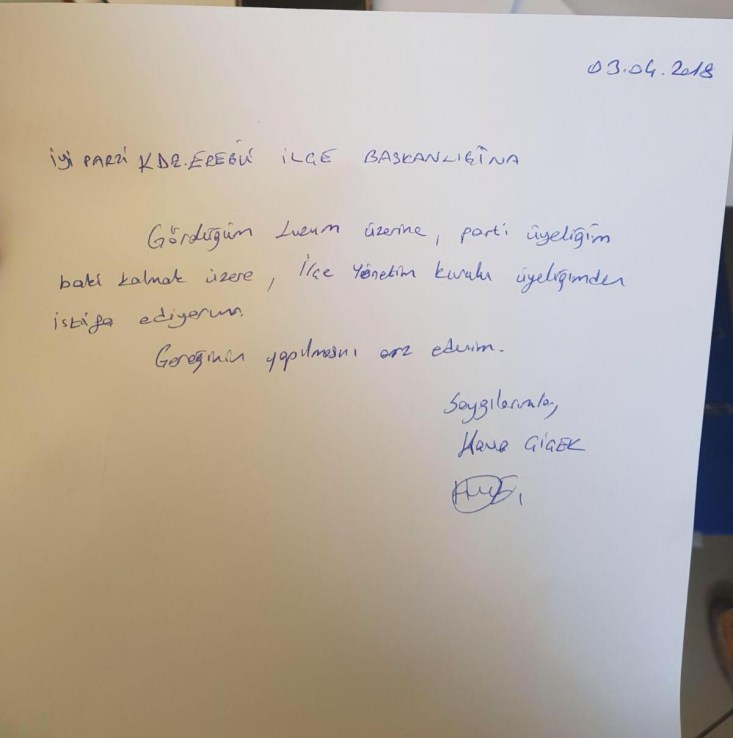 03.04.2018
İYİ PARTİ KDZ.EREĞLİ İLÇE BAŞKANLIĞINA
Gördüğüm Luzum üzerine, parti üyeliğim
baki kalmak üzere, İlçe Yönetim kurulu üyeliğimden
istifa ediyorum.
Gereğinin yapılmasını arz ederim.
Saygılarımla,
ÇİÇEK